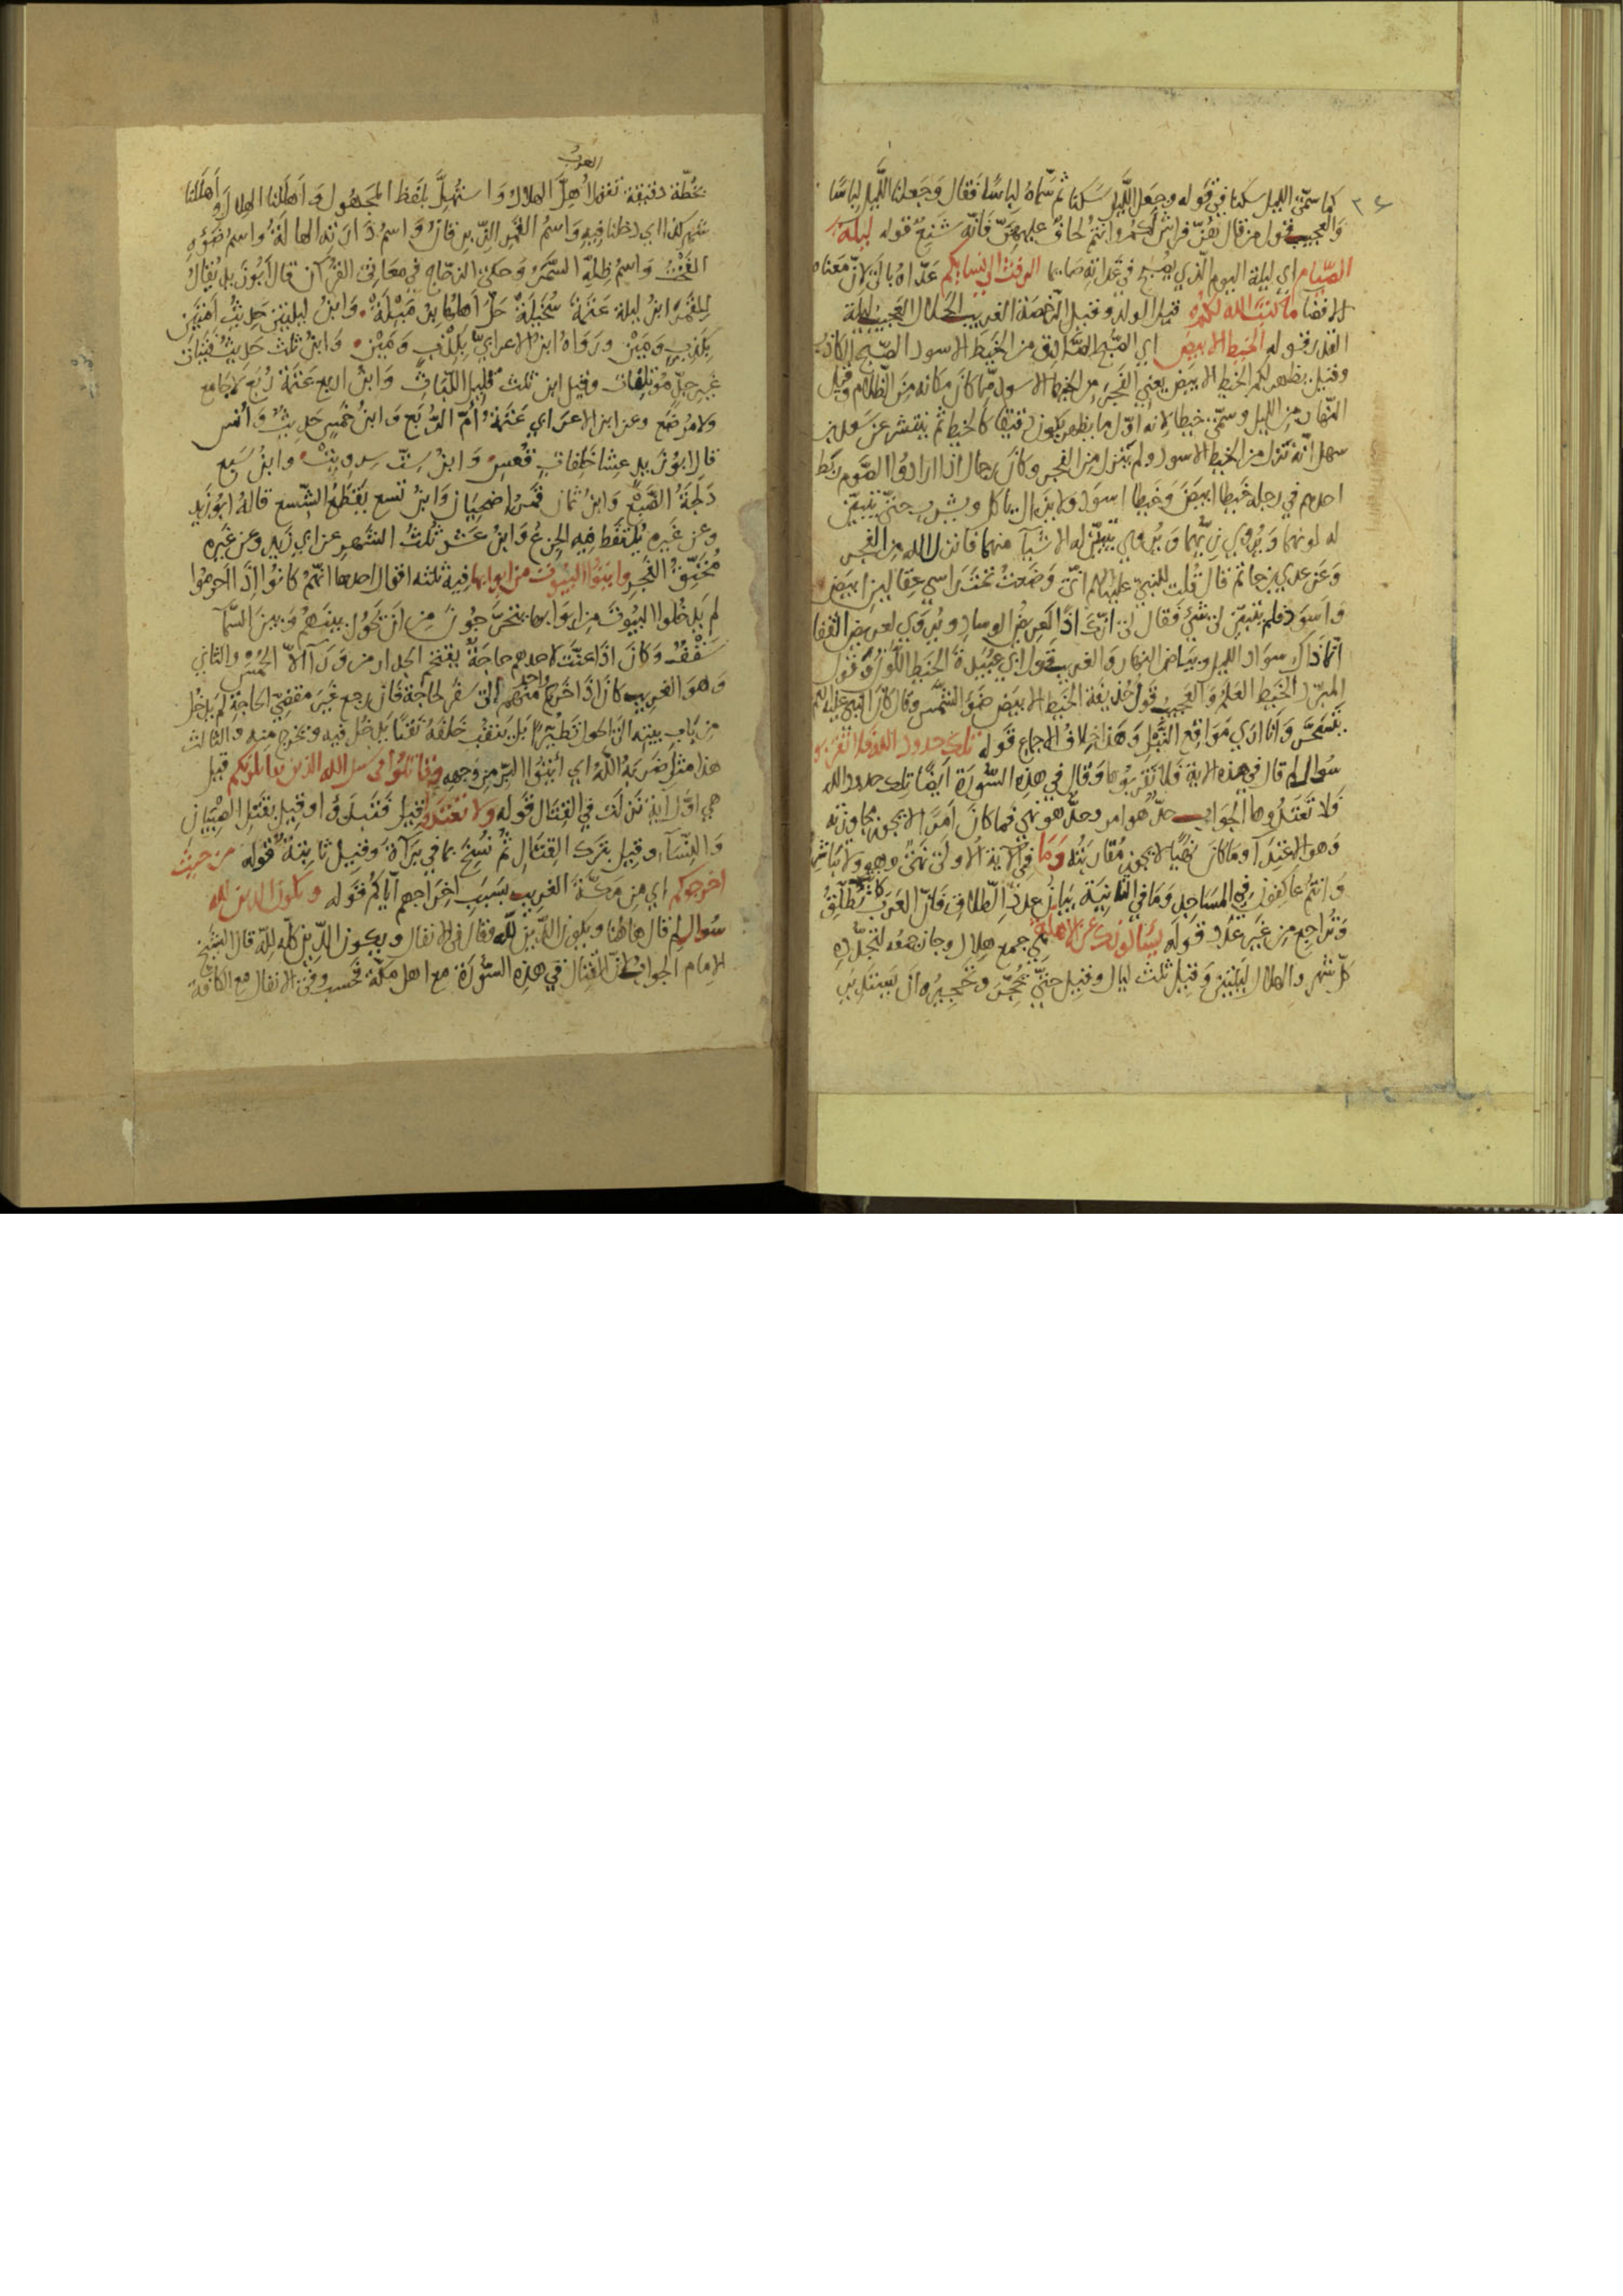 ٣٤
كما سمّى الليل سكنا في قوله وجعل اللَّيل سَكنا ثم سمّاهُ لِبَاسًا فقال وَجَعلنا اللَّيل لباسًا
وَالعجيب قول من قال هُنّ فراش لَكم وانتمُ لحاف عليهنّ فَانّه شَنيع قوله ليلة
الصّيام اي ليلة اليوم الّذي يُصبح في غداته صَايما الرفث الى نسايكم عَدّاهُ بالى لانّ مَعناه
الافضا ما كتبَ الله لكمُ قيل الولد وقيل الرّخصَة الغريب الحَلال العجيب ليلة
القدر قوله الخيط الابيض اي الصُّبح الصَّادق من الخَيط الاسود الصّبح الكاذب
وقيل يظهر لكم الخيط الابيَض يعني الفَجر من الخيط الاسود ممّا كانَ مكانه مِنَ الظّلام وقيل
النّهار مِن الليل وسمّى خيطا لانه اوّل ما يظهر يكون دَقيقًا كالخيط ثم ينتشر عَن سَهل بن
سهل انّه نَزل من الخيط الاسود ولم يَنزل مِن الفجر وكانَ رجال اذا ارادوُا الصَّوم ربَط
احدهم في رجله خَيطا ابيَضَ وَخَيطا اسوَد ولا يزال ياكل ويشرب حتىّ يتبيّن
له لونهما وَيُروي زيّهما وَيُروي يتبيّن له الاشيآ منهما فانزل الله مِن الفجر
وَعَن عدي بن حاتم قالَ قُلت للنبيّ عليه السلام انّي وَضعتُ تحتَ رَاسي عِقالين ابيَض
وَاسوَد فلم يتبيّن لى شَيْ فَقال لى انّكَ اذًا لعَرِيض الوساد ويُروَي لعريض القفا
انّما ذاك سوَاد الليل وبيَاض النهار وَالغريب قول ابي عبيدة الخيط اللَّوْن وَقول
المبرّد الخيط العَلَمُ وَالعجيب قول حُذيفة الخيط الابيَض ضَوْءُ الشَّمس وقال كان النبي عليه السلم
يَتسحّر وَانا ارَي مَوَاقع النَّبل وَهذا خِلافُ الاجماع قوله تلك حدود الله فلا تقربوها
سُوال لم قال في هذه الاية فَلا تَقربوُها وَقال في هذِه السُّورَة ايضًا تلك حدود الله
فَلا تَعتدُوها الجوَاب حدّ هُو امر وحدّ هو نهي فما كان امرًا لا يجوز مجاوزته
وَهو الاعتِدآ وما كانَ نَهيًا لا يجوز مُقاربَتُه وَما في الآية الاولى نَهىٌ وهو ولا تباشروهن
وَانتمُ عاكفوُن في المسَاجد وَما في الثانِية بيَانُ عدد الطَّلاق فانّ العَرب كانت تُطلّقُ
وتُراجع مِن غَير عَدد قوله يسَالونك عن الاهلّة هي جمع هِلال وجاز جمعُه لتجَدّدِه
كلّ شَهر والهلال ليلتين وَقيل ثلث ليال وقيل حتىّ يُحجّر وَتحجيرُه ان يَستدير
بخُطّة دقيقة تقول العرب اُهلّ الهلالُ وَاستُهلَّ بلفظ المجهُول وَاهلَلنا الهِلال وَاَهللنا
شهر كذا اي دَخلنا فيهِ وَاسمُ القَمر الزّبرقانُ وَاسم دَارته الهالَةُ واسم ضَوْءِه
الفَخْتُ وَاسم ظِلّهِ السَّمَرُ وَحكى الزجّاج في معَاني القرآن قال ابو زيد يُقالُ
لِلقمَر ابنُ ليلة عَتمَةُ سُخَيلَةْ حَلّ اَهلهُا برُمَيْلَةْ وَابنُ ليلتين حَديثُ اَمَتَين
بكذبٍ وَمَيْن وَرَوَاهُ ابن الاعرابيّ بكذب وَمَيْن وَابنُ ثلث حَديثُ فَتيات
غير جدّ مؤتلفات وقيل ابن ثلث قليل اللَّبَاث وَابن اربع عَتمَةُ رُبَع لاجايع
ولا مُرضَع وعن ابن الاعرابي عَتَمَةُ اُمّ الرُّبَع وَابنُ خَمسٍ حَديثٌ وَاُنس
قال ابوُ زيد عشا خَلِفات قُعس وَابنُ ستّ سِر وبتْ وابنُ سَبع
دَلجَةُ الضَّبُع وَابن ثمان قمَر اضحيَان وَابن تسع يَقطعُ الشّسع قاله ابوُ زيد
وعن غيرِه يُلتقَط فيه الجزعُ وَابنُ عَشر ثُلثُ الشّهر عن ابي زيد وعن غَيره
مُخنّقُ الفَجرِ واتوا البيوُت من ابوابها فيه ثلثه اقوال احدها انّهمُ كانوُا اِذَا احرَموُا
لم يَدخُلوا البيُوتَ مِن ابوَابها يتحرَّجوُنَ مِن ان يحَوُل بينَهمُ وَبين السّمآ
سَقْفٌ وَكانَ اذَا عنّت لاحدهم حاجَةٌ يقتحم الجدار من ورآ الاّ الحُمسُ والثاني
وَهو الغريب كانَ اذا خَرجَ واحد منهم الى سفر لحاجَة فان رجع غَيرَ مَقضِيّ الحاجةِ لم يَدخُل
مِن بَاب بيته الى الحول تَطيُّرًا بَل يَنقُبُ خَلفهُ نَقبًا يَدخُل فيه وَيخرج منه والثالث
هذا مثل ضَربَهُ اللهُ اي اُيتوُا البرّ مِن وَجهه وقاتلوُا في سبيل الله الذين يقاتلونكم قيل
هي اوّل ايَةٍ نَزلَت في القِتال قوله وَلا تعتدوُا قيل فتَبدَؤُا وقيل بقَتل الصّبيَان
وَالنّسآءِ وقيل بترك القتال ثُمّ نُسِخَ بما في برَآةَ وقيل ثابتةٌ قوله من حيث
اخرجوكم اي مِن مكّة الغريب بسَبَب اخِرَاجهم ايّاكُم قوله ويكون الدين لله
سُوال لم قال هاهنا وَيكون الدّينُ لله وَقال في الانفال ويكون الدّين كلّه لله قال الشيخُ
الامام الجواب لانّ القتال في هذِه السّوُرَة مع اهل مكّة فَحسب وفي الانفال مع الكافة